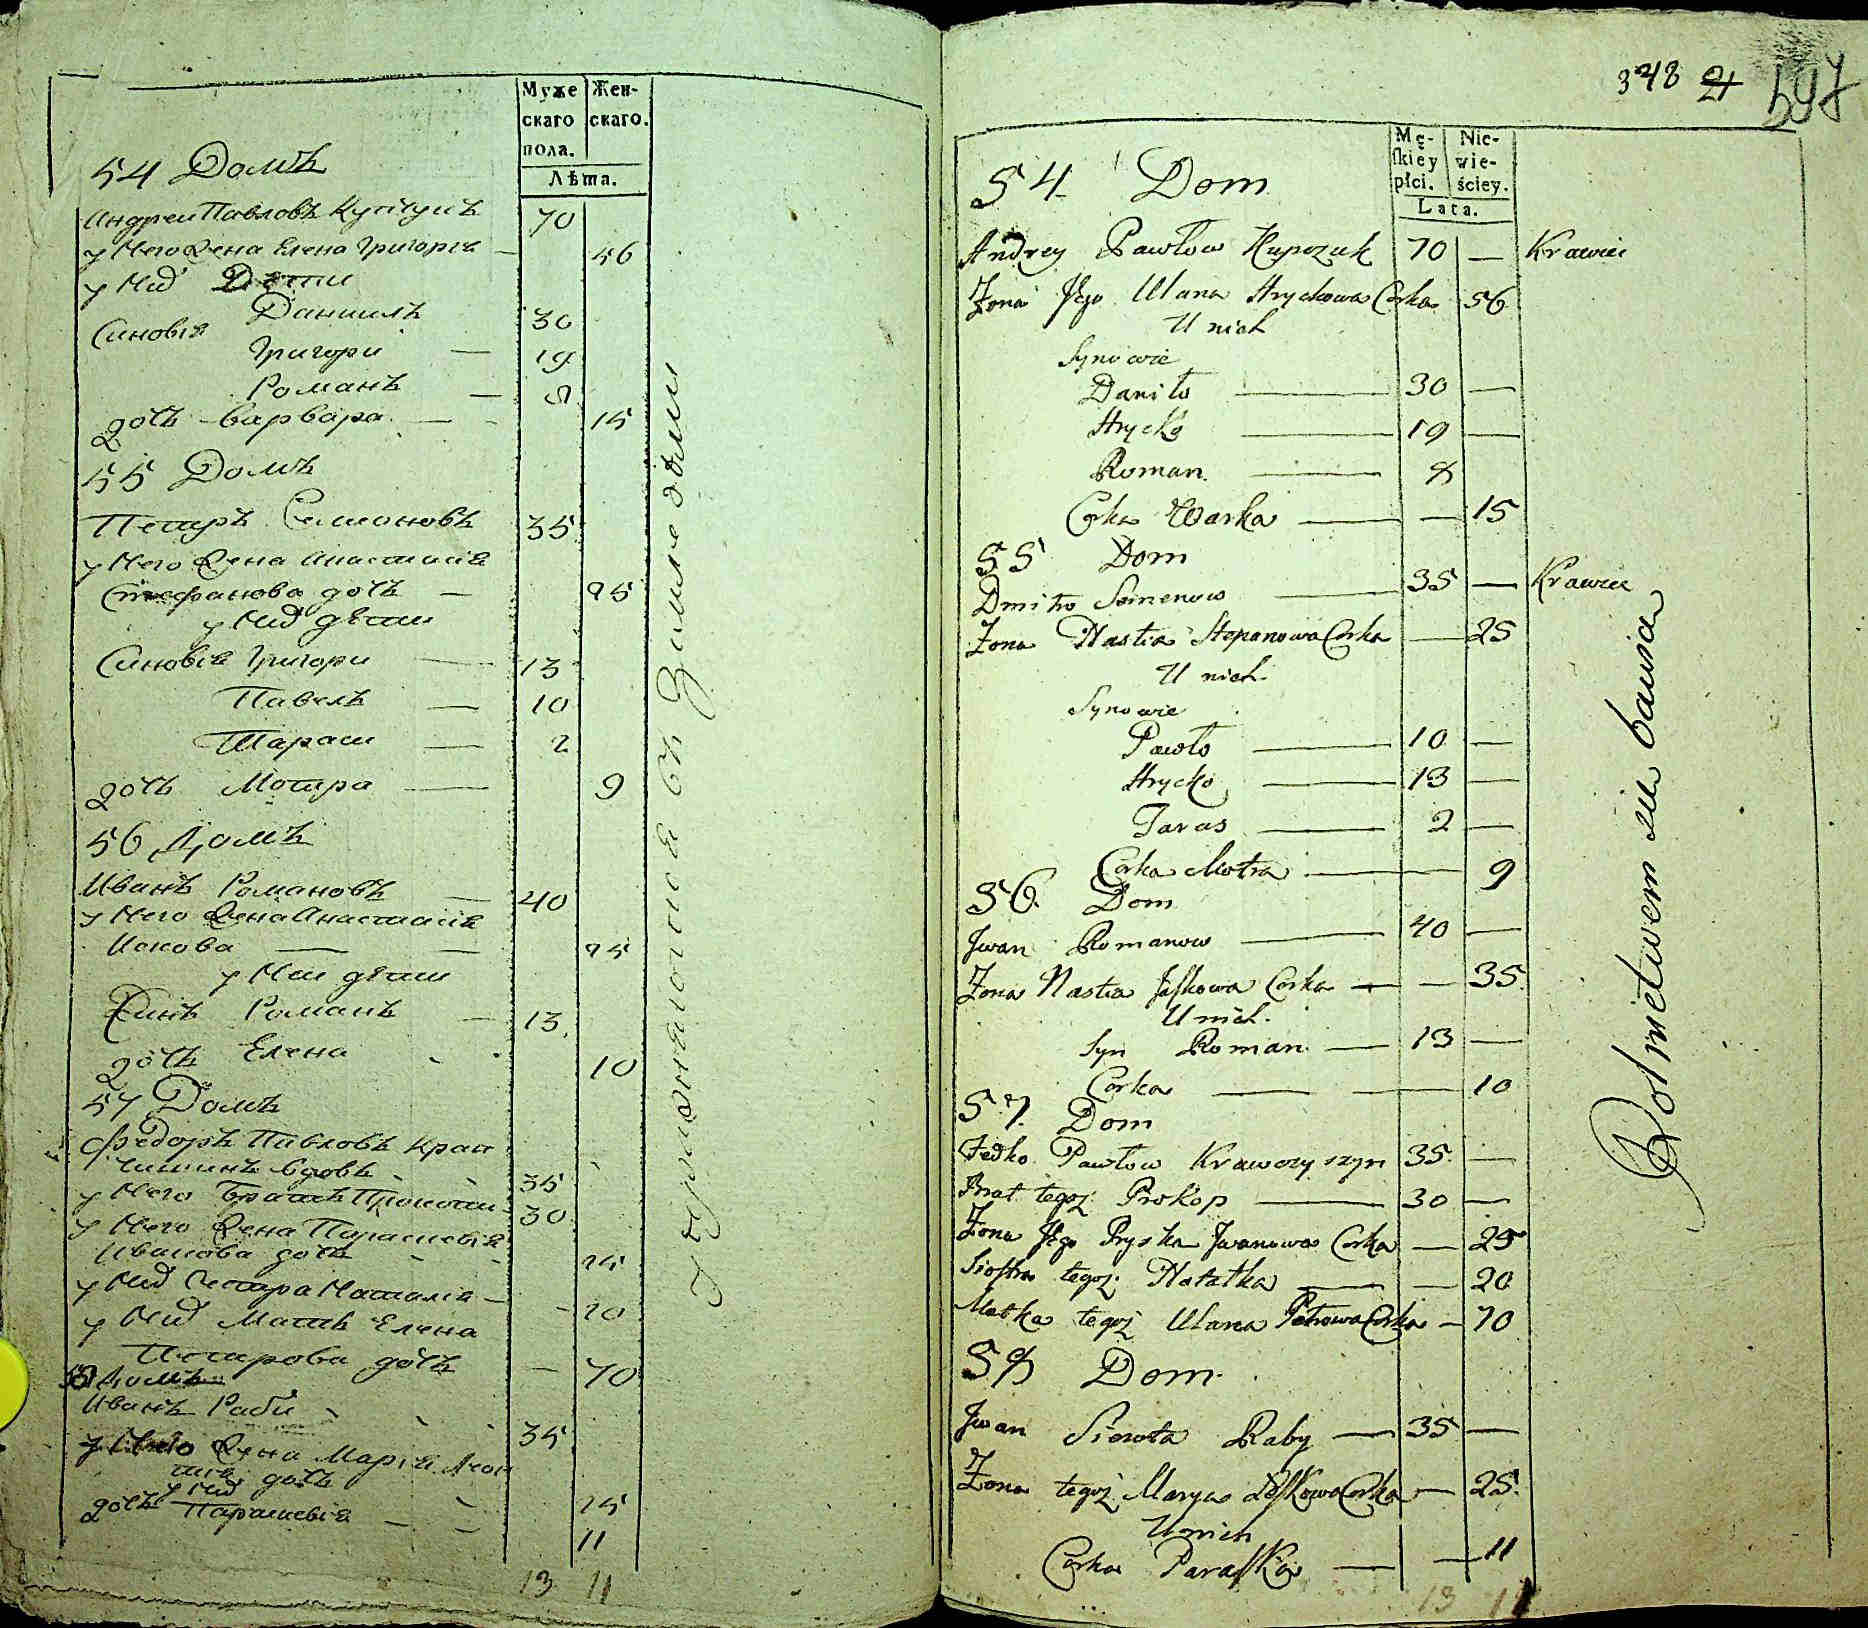 Муже Жен-
скаго скаго.
пола.
Лѣта.
54 Домъ
Андреи Павловъ Купчукъ 70
у Него Жена Елена Григорева — 56
у Них Дети
Синовія Даниилъ 30
Григори — 19
Романъ — 8
дочь Варвара — 15
55 Домъ
Петръ Семоновъ 35
у Него Жена Анастасія
Стефанова дочь — 25
у Них дети
Синовія Григори — 13
Павелъ — 10
Тарасъ — 2
дочь Мотра — 9
56 Домъ
Иванъ Романовъ — 40
у Него Жена Анастасія
Искова — — 25
у Них дети
Синъ Романъ — 13
дочь Елена 10
57 Домъ
Федоръ Павловъ Крав
чишинъ вдовъ 35
у Него Братъ Прокопи 30
у Него Жена Парасковія
Иванова дочь 25
у Них Сестра Наталія — 20
у Них Мать Елена
Петрова дочь — 70
58 Домъ
Иванъ Раби 35
у Него Жена Марія Леон
тіева дочь 25
у Них
дочь Парасковія — 11
13 11
упражняются въ Земледѣліи
348 21 597
Mę- Nie-
skiey wie-
płci. ściey.
Lata.
54 Dom
Andrey Pawłow Kupczuk 70 — Krawiec
Żona Jego Ulana Hryckowa Corka 56
U nich
Synowie
Daniło — 30 —
Hrycko — 19 —
Roman — 8
Corka Warka — — 15
55 Dom
Dmitro Semenow — 35 — Krawiec
Żona Nastia Stepanowa Corka — 25
U nich
Synowie
Pawło — 10 —
Hrycko — 13 —
Taras — 2 —
Corka Motra — — 9
56 Dom
Jwan Romanow — 40 —
Żona Nastia Jaśkowa Corka — — 35
U nich.
Syn Roman — 13 —
Corka — — 10
57. Dom
Fedko Pawłow Krawczyszyn 35 —
Brat tegoż Prokop — 30 —
Żona Jego Pryska Jwanowa Corka — 25
Siostra tegoż Natałka — — 20
Matka tegoż Ulana Petrowa Corka — 70
58 Dom
Jwan Sierota Raby — 35 —
Żona tegoż Marya Leśkowa Corka — 25.
U nich
Corka Paraska — — 11
13 11
Rolnictwem się bawią